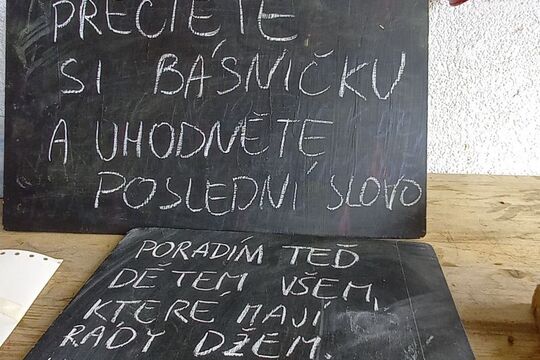 PŘEČTĚTE
SI BÁSNIČKU
A UHODNĚTE
POSLEDNÍ SLOVO
PORADÍM TEĎ
DĚTEM VŠEM,
KTERÉ MAJÍ
RÁDY DŽEM.